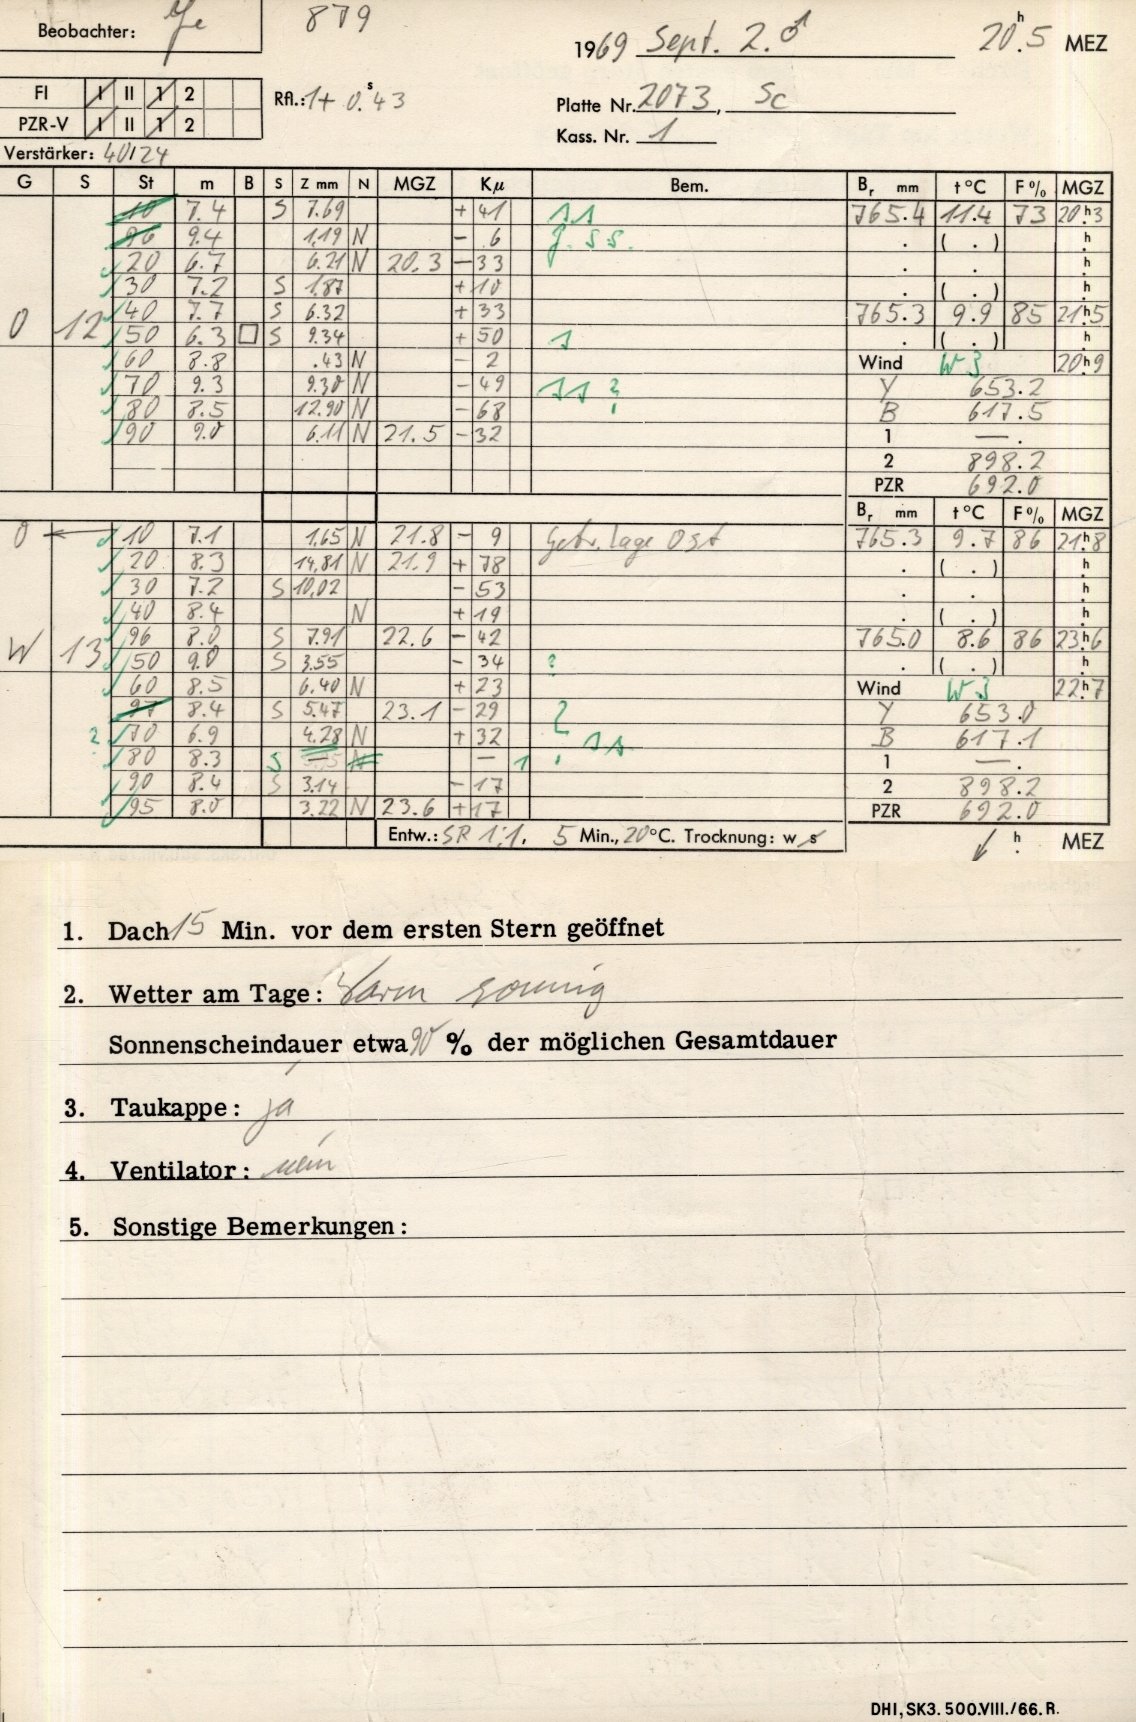 Beobachter: Je
879
1969 Sept. 2. ♂ 20h.5 MEZ
FI I II 1 2
Rfl.: 1+ 0.s43
Platte Nr. 2073, Sc
PZR-V I II 1 2
Kass. Nr. 1
Verstärker: 40/24
G S St m B S Z mm N MGZ Kμ Bem. Br mm t°C F% MGZ
10 7.4 S 7.69 + 41 11 765.4 11.4 73 20h.3
96 9.4 1.19 N - 6 f. ss. . ( . ) h
20 6.7 6.21 N 20.3 - 33 . . h
30 7.2 S 1.87 + 10 . ( . ) h
0 12 40 7.7 S 6.32 + 33 765.3 9.9 85 21h.5
50 6.3 □ S 9.34 + 50 1 . ( . ) h
60 8.8 .43 N - 2 Wind W 3 20h9
70 9.3 9.30 N - 49 11 ? Y 653.2
80 8.5 12.90 N - 68 B 617.5
90 9.0 6.11 N 21.5 - 32 1 — .
2 898.2
PZR 692.0
Br mm t°C F% MGZ
0 ← 10 7.1 1.65 N 21.8 - 9 Getr. lage Ost 765.3 9.7 86 21h.8
20 8.3 14.81 N 21.9 + 78 . ( . ) h
30 7.2 S 10,02 - 53 . . h
40 8.4 N + 19 . ( . ) h
W 13 96 8.0 S 7.91 22.6 - 42 765.0 8.6 86 23h.6
50 9.0 S 3.55 - 34 ? . ( . ) h
60 8.5 6.40 N + 23 Wind W 3 22h.7
97 8.4 S 5.47 23.1 - 29 ? Y 653.0
? 70 6.9 4.28 N + 32 11 B 617.1
80 8.3 S — N — 1 1 — .
90 8.4 S 3.14 - 17 2 898.2
95 8.0 3.22 N 23.6 + 17 PZR 692.0
Entw.: SR 1:1, 5 Min., 20°C. Trocknung: w s h . MEZ
1. Dach 15 Min. vor dem ersten Stern geöffnet
2. Wetter am Tage: Warm sonnig
Sonnenscheindauer etwa 90 % der möglichen Gesamtdauer
3. Taukappe: ja
4. Ventilator: nein
5. Sonstige Bemerkungen:
DHI, SK3. 500.VIII./66. R.